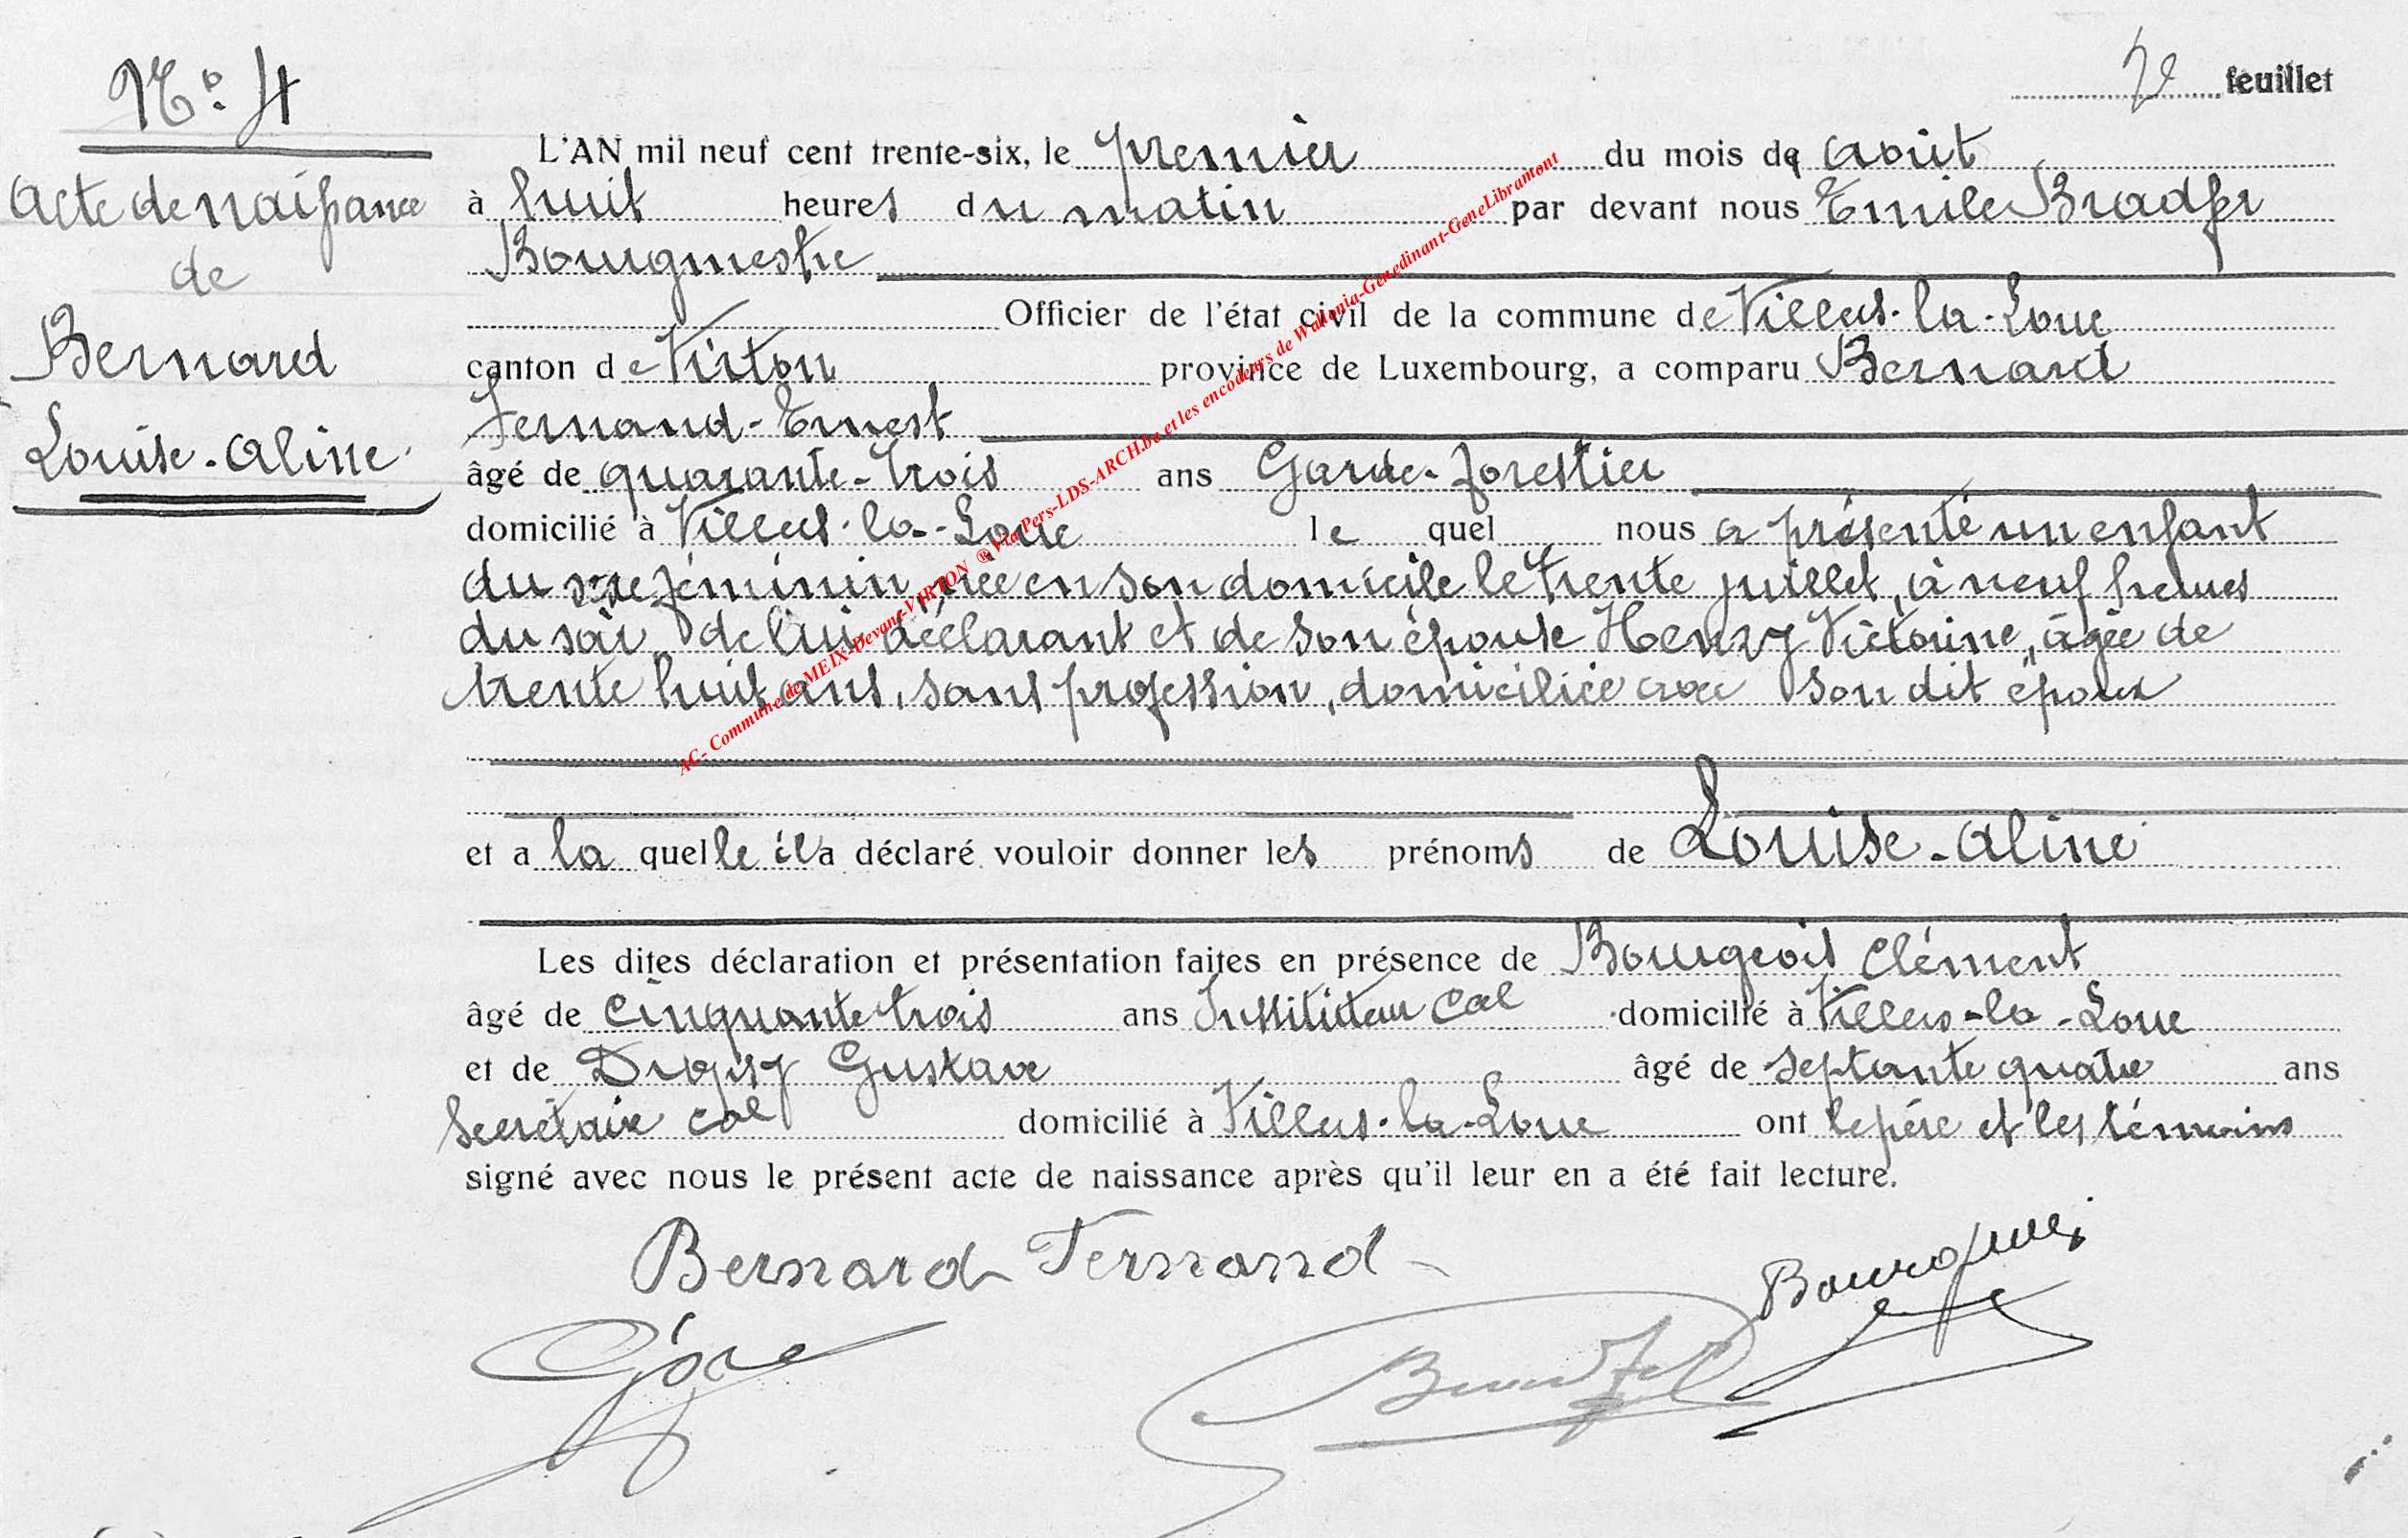 N° 4
2e feuillet
L'AN mil neuf cent trente-six, le premier du mois de août
Acte de naissance
à huit heures du matin par devant nous Emile Bradfer
de
Bourgmestre
Officier de l'état civil de la commune de Villers-la-Loue
Bernard
canton de Virton province de Luxembourg, a comparu Bernard
Fernand-Ernest
Louise-Aline
âgé de quarante-trois ans Garde-forestier
domicilié à Villers-la-Loue lequel nous a présenté un enfant
du sexe féminin, née en son domicile le trente juillet, à neuf heures
du soir de lui déclarant et de son épouse Henry Victorine, âgée de
trente huit ans, sans profession, domiciliée avec son dit époux
et a la quelle il a déclaré vouloir donner les prénoms de Louise-Aline
Les dites déclaration et présentation faites en présence de Bourgeois Clément
âgé de cinquante trois ans Instituteur cal domicilié à Villers-la-Loue
et de Gustave âgé de septante quatre ans
Secrétaire cal domicilié à Villers-la-Loue ont le père et les témoins
signé avec nous le présent acte de naissance après qu'il leur en a été fait lecture.
Bernard Fernand
AC- Commune de MEIX-Devant-VIRTON ® Via Pers-LDS-ARCH.be et les encodeurs de Wallonia-Genedinant-GeneLibramont